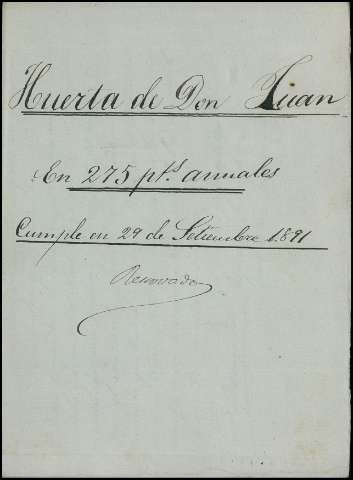 Huerta de Don Juan
En 275 pts annales
Cumple en 29 de Setiembre 1.891
Renovado